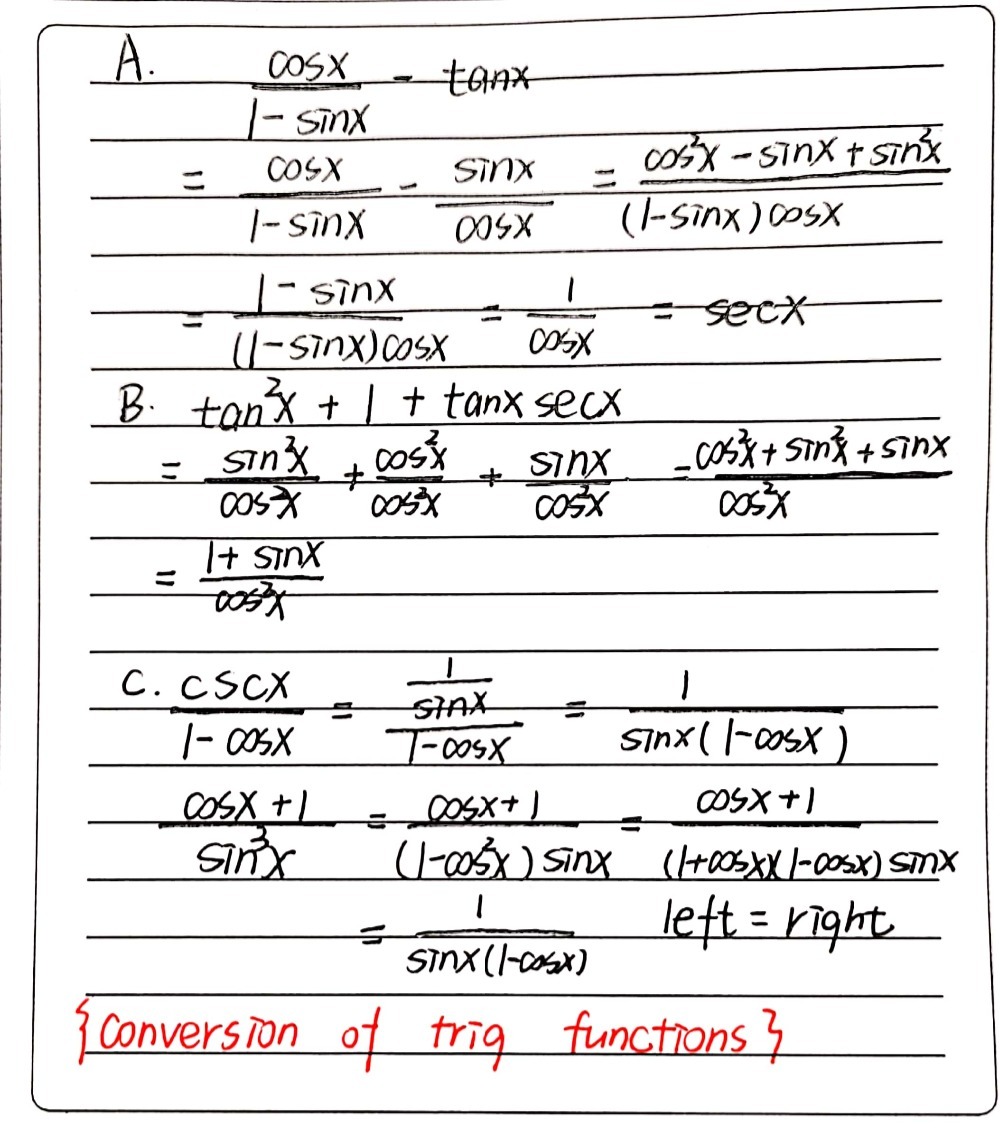 A. cosx/(1-sinx) - tanx
= cosx/(1-sinx) - sinx/cosx = (cos²x - sinx + sin²x)/((1-sinx)cosx)
= (1-sinx)/((1-sinx)cosx) = 1/cosx = secx
B. tan²x + 1 + tanx secx
= sin²x/cos²x + cos²x/cos²x + sinx/cos²x = (cos²x + sin²x + sinx)/cos²x
= (1+sinx)/cos²x
C. cscx/(1-cosx) = (1/sinx)/(1-cosx) = 1/(sinx(1-cosx))
(cosx+1)/sin³x = (cosx+1)/((1-cos²x)sinx) = (cosx+1)/((1+cosx)(1-cosx)sinx)
= 1/(sinx(1-cosx)) left = right
{conversion of trig functions}